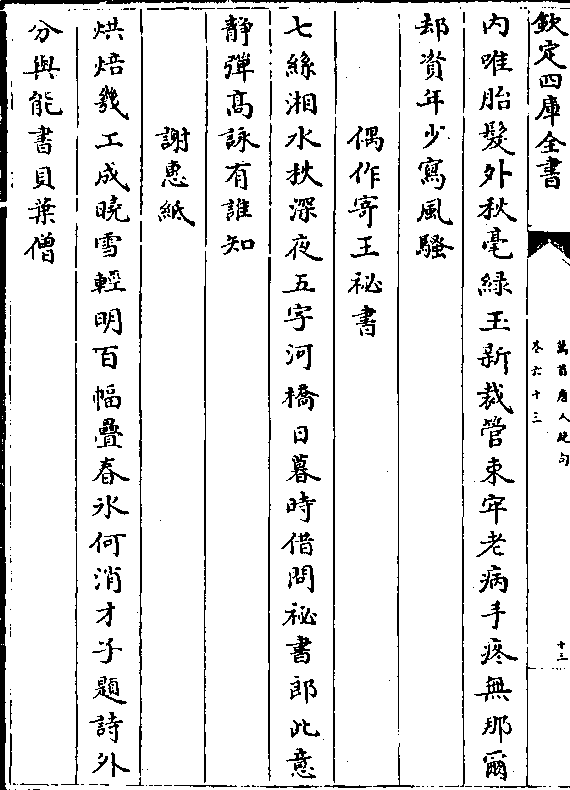 欽定四庫全書
萬首唐人絶句
卷六十三
十三
内唯胎髮外秋毫綠玉新裁管束牢老病手疼無那爾
却資年少寫風騷
偶作寄王祕書
七絲湘水秋深夜五字河橋日暮時借問祕書郎此意
靜彈髙詠有誰知
謝惠紙
烘焙幾工成曉雪輕明百幅疊春氷何消才子題詩外
分與能書貝葉僧